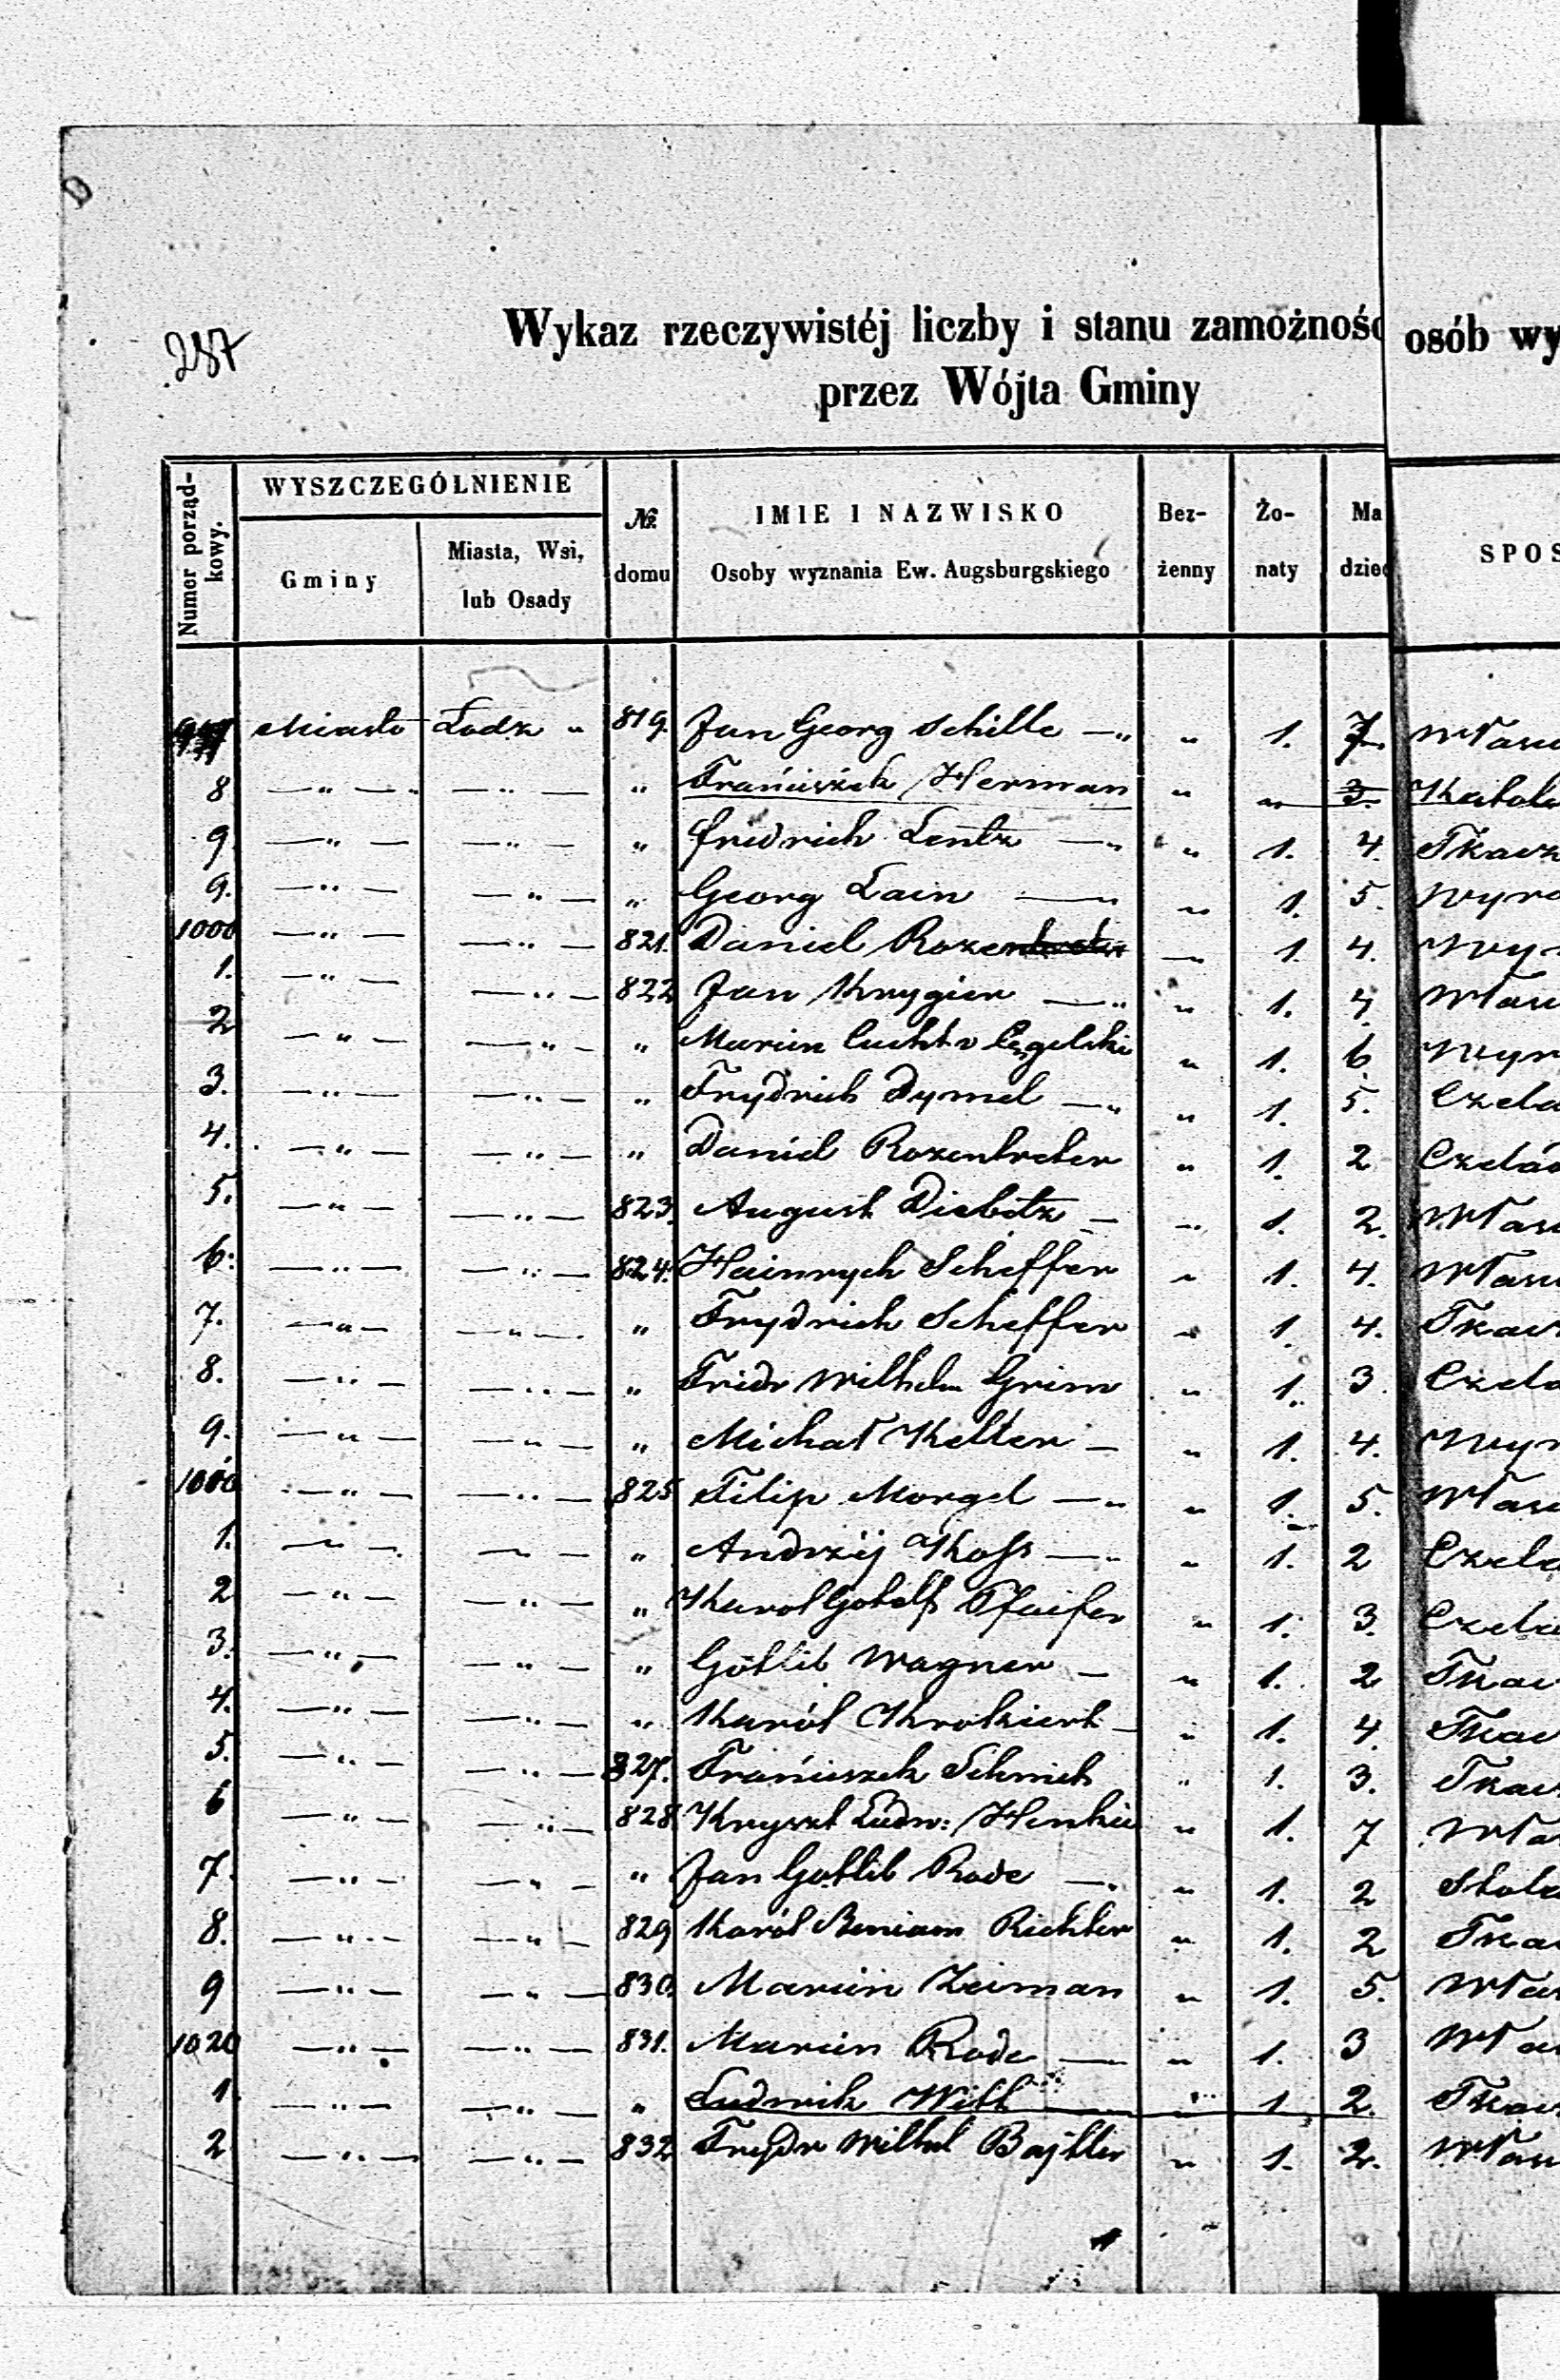 287
Wykaz rzeczywistéj liczby i stanu zamożnośc osób wy
przez Wójta Gminy
Numer porządkowy. WYSZCZEGÓLNIENIE № domu IMIE I NAZWISKO Bezżenny Żonaty Ma dziec SPOS
Gminy Miasta, Wsi, lub Osady Osoby wyznania Ew. Augsburgskiego
Miasto Łodz " 819. Jan Georg Schille —" " 1. 7. Włas
8 —"— —"— " Frańciszek Herman " " 3. Katol
9 —"— —"— " fridrich Lentz —" " 1. 4. Tkacz
9. —"— —"— " Georg Lain —" " 1. 5. Wyro
1000 —"— —"— 821. Daniel " 1. 4. Wy
1. —"— —"— 822 Jan Krygier —" " 1. 4. Włas
2 —"— —"— " Marcin " 1. 6. Wyr
3. —"— —"— " Frydrich Dymel —" " 1. 5. Czela
4. —"— —"— " Daniel Rozentreter " 1. 2 Czela
5. —"— —"— 823. August Diebetz — " 1. 2. Włas
6. —"— —"— 824. Heinrych Scheffer " 1. 4. Włas
7. —"— —"— " Frydrich Scheffer " 1. 4. Tkac
8. —"— —"— " Fridr Wilhelm Grim " 1. 3. Czela
9. —"— —"— " Michał Kelter — " 1. 4. Wyr
—"— —"— 825 Filip Morgel —" " 1. 5. Włas
1. —"— —"— " Andrzij Koss —" " 1. 2 Czela
2 —"— —"— " Karol Gotolf Pfaifer " 1. 3. Czela
3. —"— —"— " Gotlib Wagner — " 1. 2 Tkac
4. —"— —"— " Karól — " 1. 4. Tkac
5. —"— —"— 827. Frańciszek " 1. 3. Tkac
6 —"— —"— 828 Kryszt Ludw: " 1. 7 Wła
7. —"— —"— " Jan Gotlib Rode —" " 1. 2 Stola
8. —"— —"— 829 Karól Beniam Richter " 1. 2 Tka
9 —"— —"— 830. Marcin Zeiman " 1. 5. Wła
1020 —"— —"— 831. Marcin Rode — " 1. 3 Wła
1 —"— —"— " Ludwik Witt " 1 2. Tkac
2 —"— —"— 832 Frydr Wilhel " 1. 2. Włas